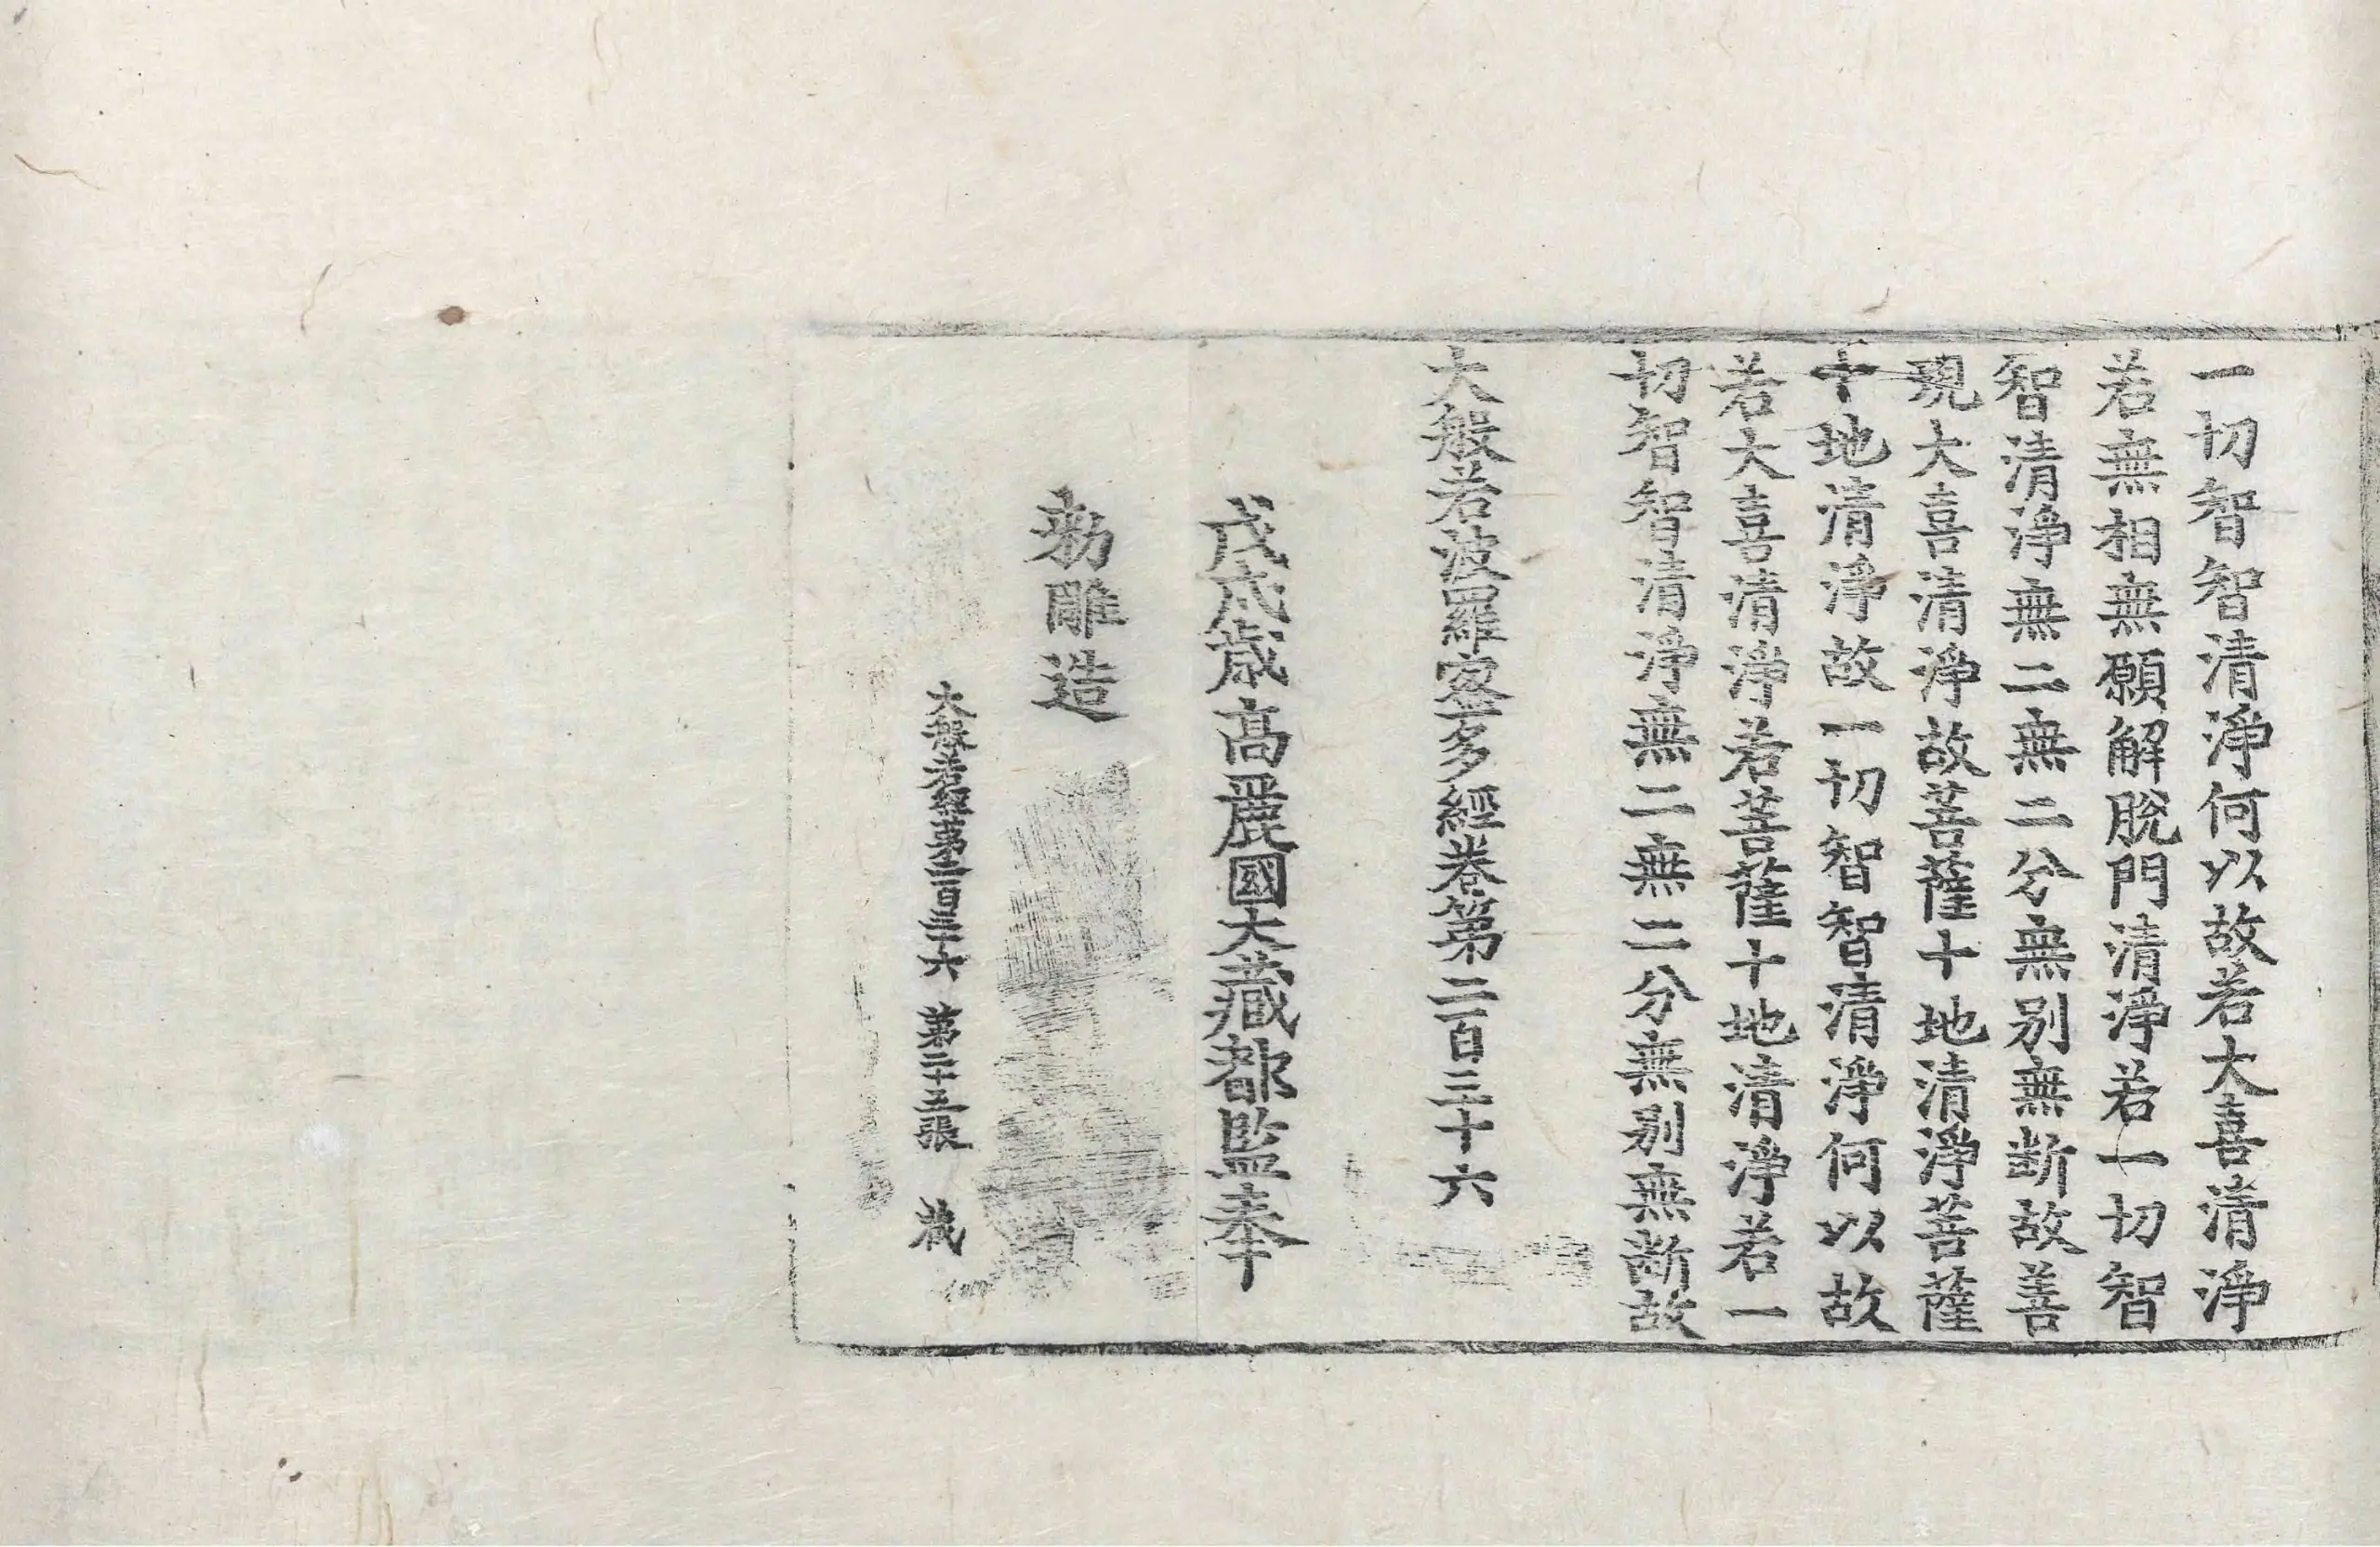 一切智智清淨何以故若大喜清淨
若無相無願解脫門清淨若一切智
智清淨無二無二分無別無斷故善
現大喜清淨故菩薩十地清淨菩薩
十地清淨故一切智智清淨何以故
若大喜清淨若菩薩十地清淨若一
切智智清淨無二無二分無別無斷故
大般若波羅蜜多經卷第二百三十六
戊戌歲高麗國大藏都監奉
勑雕造
大般若經第二百三十六 第二十五張